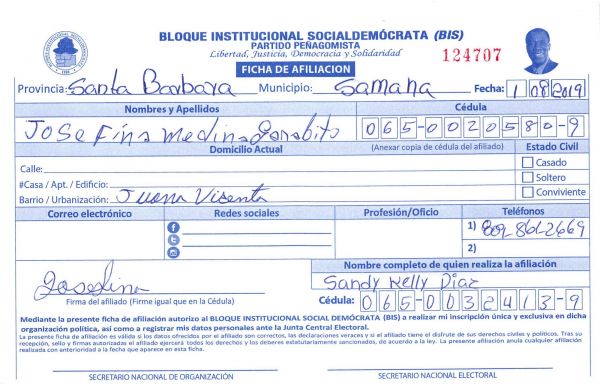 BLOQUE INSTITUCIONAL SOCIALDEMÓCRATA (BIS)
PARTIDO PEÑAGOMISTA
Libertad, Justicia, Democracia y Solidaridad
124707
FICHA DE AFILIACION
Provincia: Santa Barbara Municipio: Samana Fecha: 1 08 2019
Nombres y Apellidos Cédula
Josefina Medina Garabito 065-0020580-9
Domicilio Actual (Anexar copia de cédula del afiliado) Estado Civil
Calle: Casado
#Casa / Apt. / Edificio: Soltero
Barrio / Urbanización: Juana Vicenta Conviviente
Correo electrónico Redes sociales Profesión/Oficio Teléfonos
1) 809-861-2669
2)
Nombre completo de quien realiza la afiliación
Josefina Sandy Kelly Diaz
Firma del afiliado (Firme igual que en la Cédula) Cédula: 065-0032413-9
Mediante la presente ficha de afiliación autorizo al BLOQUE INSTITUCIONAL SOCIAL DEMÓCRATA (BIS) a realizar mi inscripción única y exclusiva en dicha
organización política, así como a registrar mis datos personales ante la Junta Central Electoral.
La presente ficha de afiliación es válida si los datos ofrecidos por el afiliado son correctos, las declaraciones veraces y si el afiliado tiene el disfrute de sus derechos civiles y políticos. Tras su
recepción, sello y firmas autorizadas el afiliado ejercerá todos los derechos y los deberes estatutariamente sancionados, de acuerdo a la ley. La presente afiliación anula cualquier afiliación
realizada con anterioridad a la fecha que aparece en esta ficha.
SECRETARIO NACIONAL DE ORGANIZACIÓN SECRETARIO NACIONAL ELECTORAL